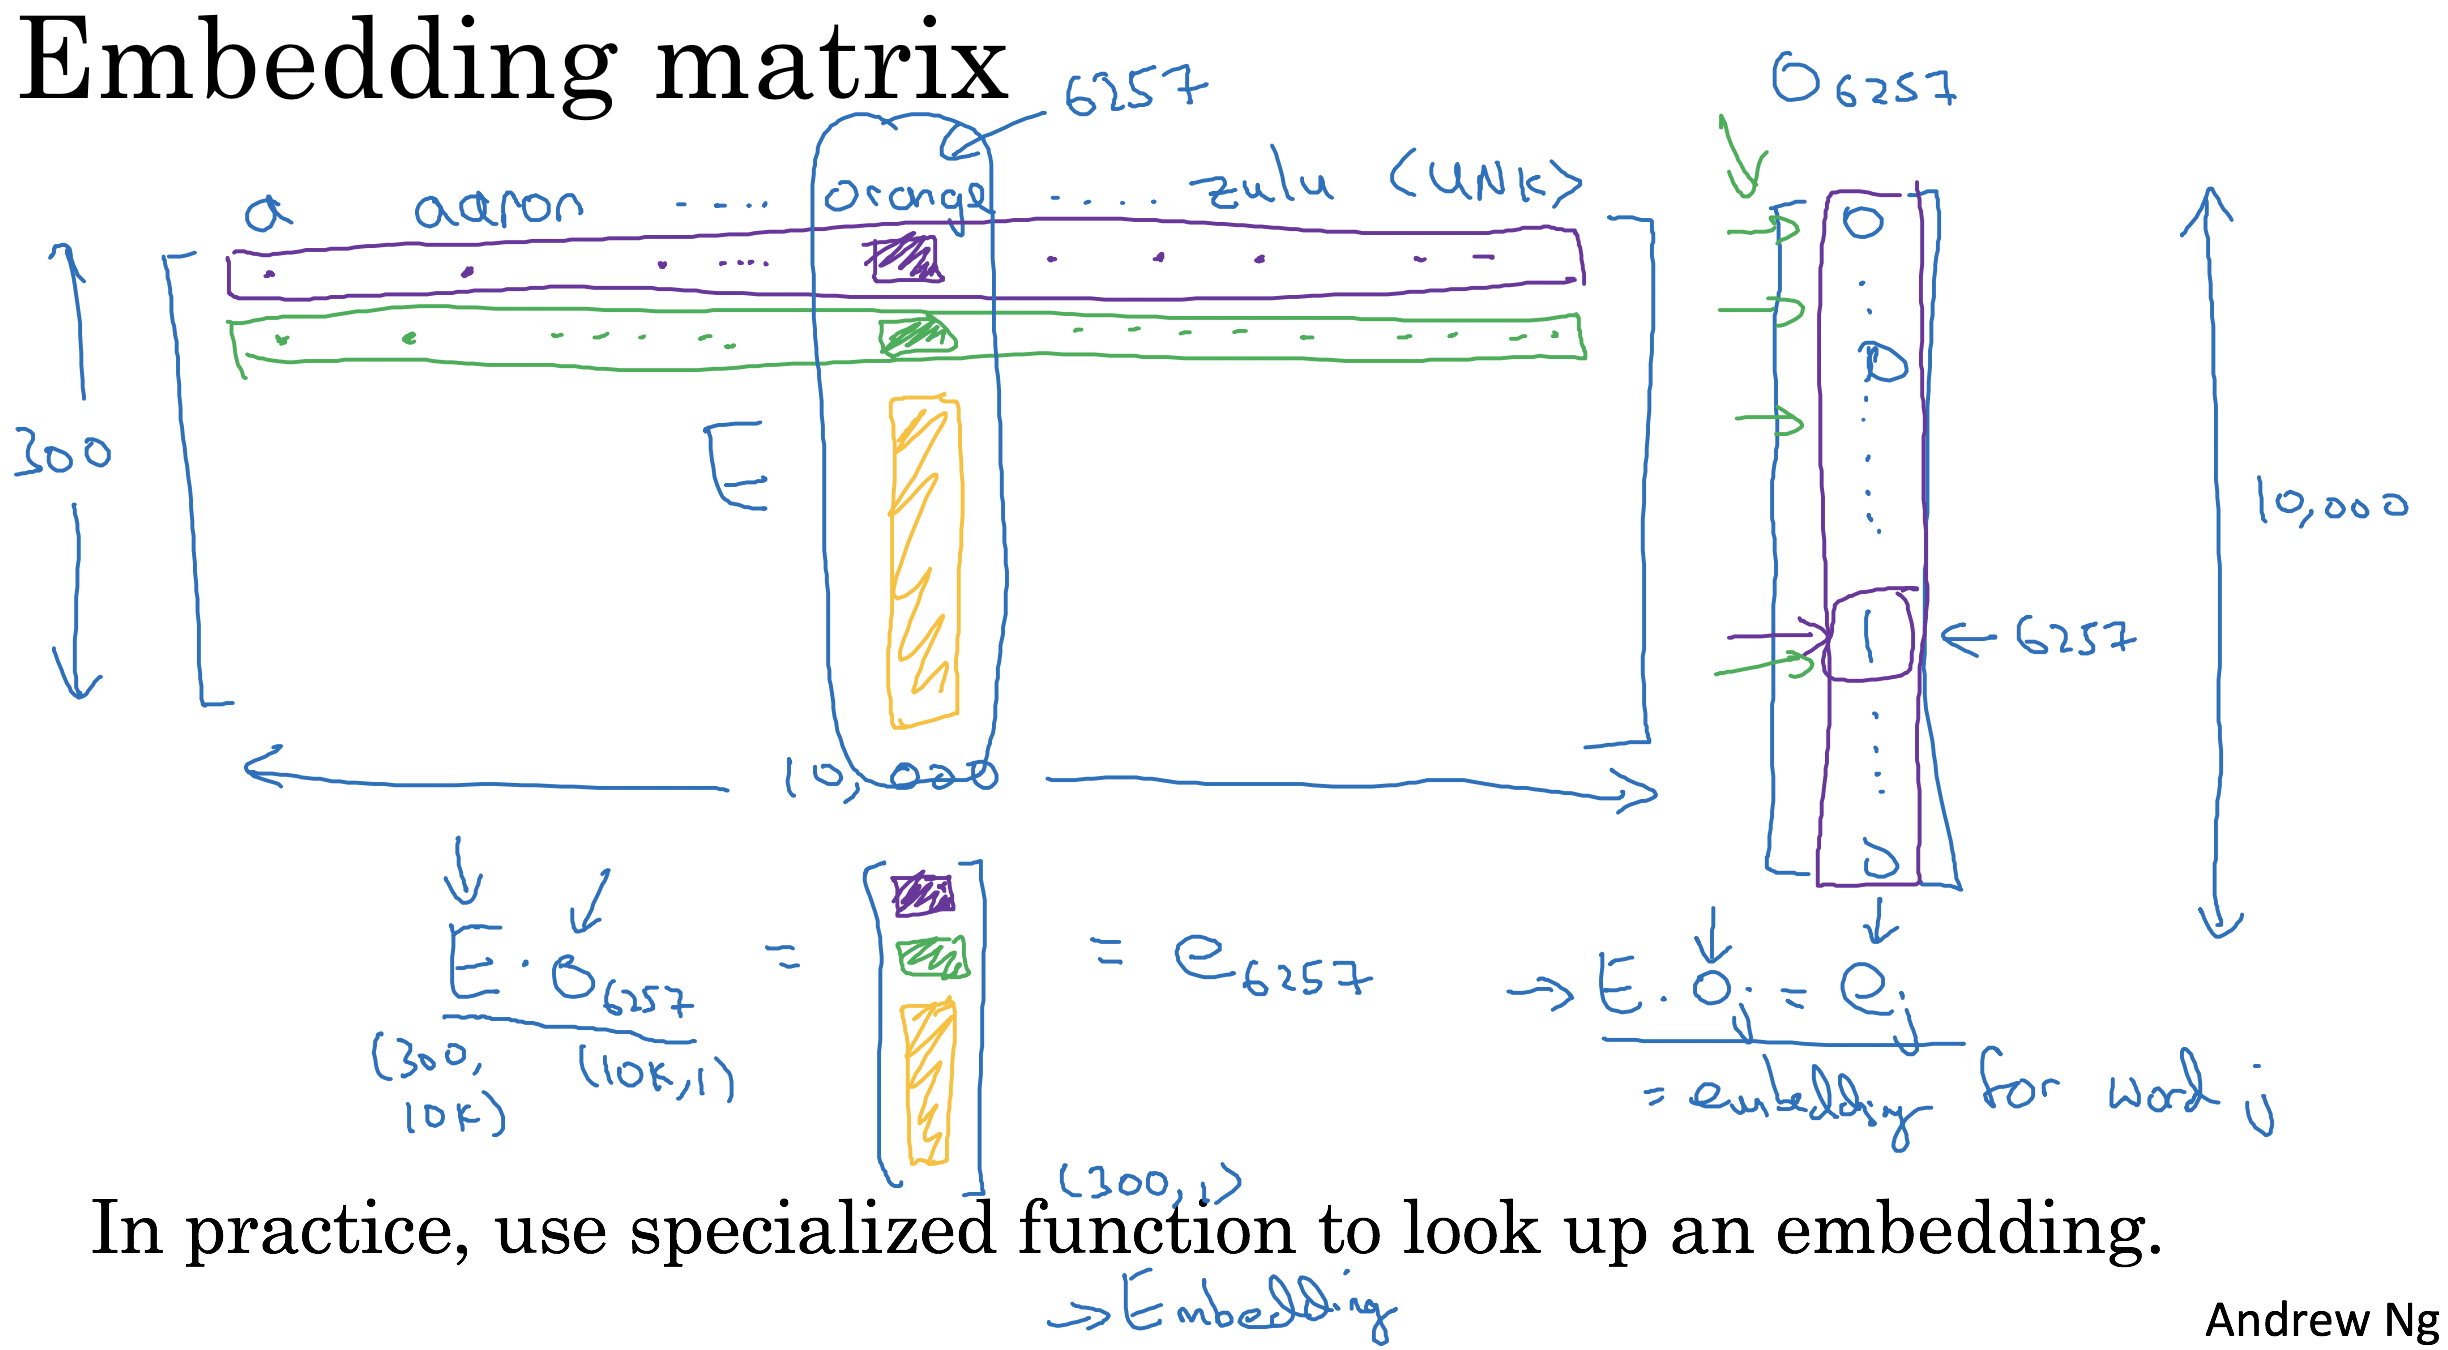 Embedding matrix
6257
O6257
a aaron ..... orange ..... zulu <UNK>
0
0
300
E
10,000
1
← 6257
0
10,000
E · O6257 = [ ] = e6257
→ E · Oj = ej
(300, 10K)
(10K, 1)
= embedding for word j
(300, 1)
In practice, use specialized function to look up an embedding.
→ Embedding
Andrew Ng